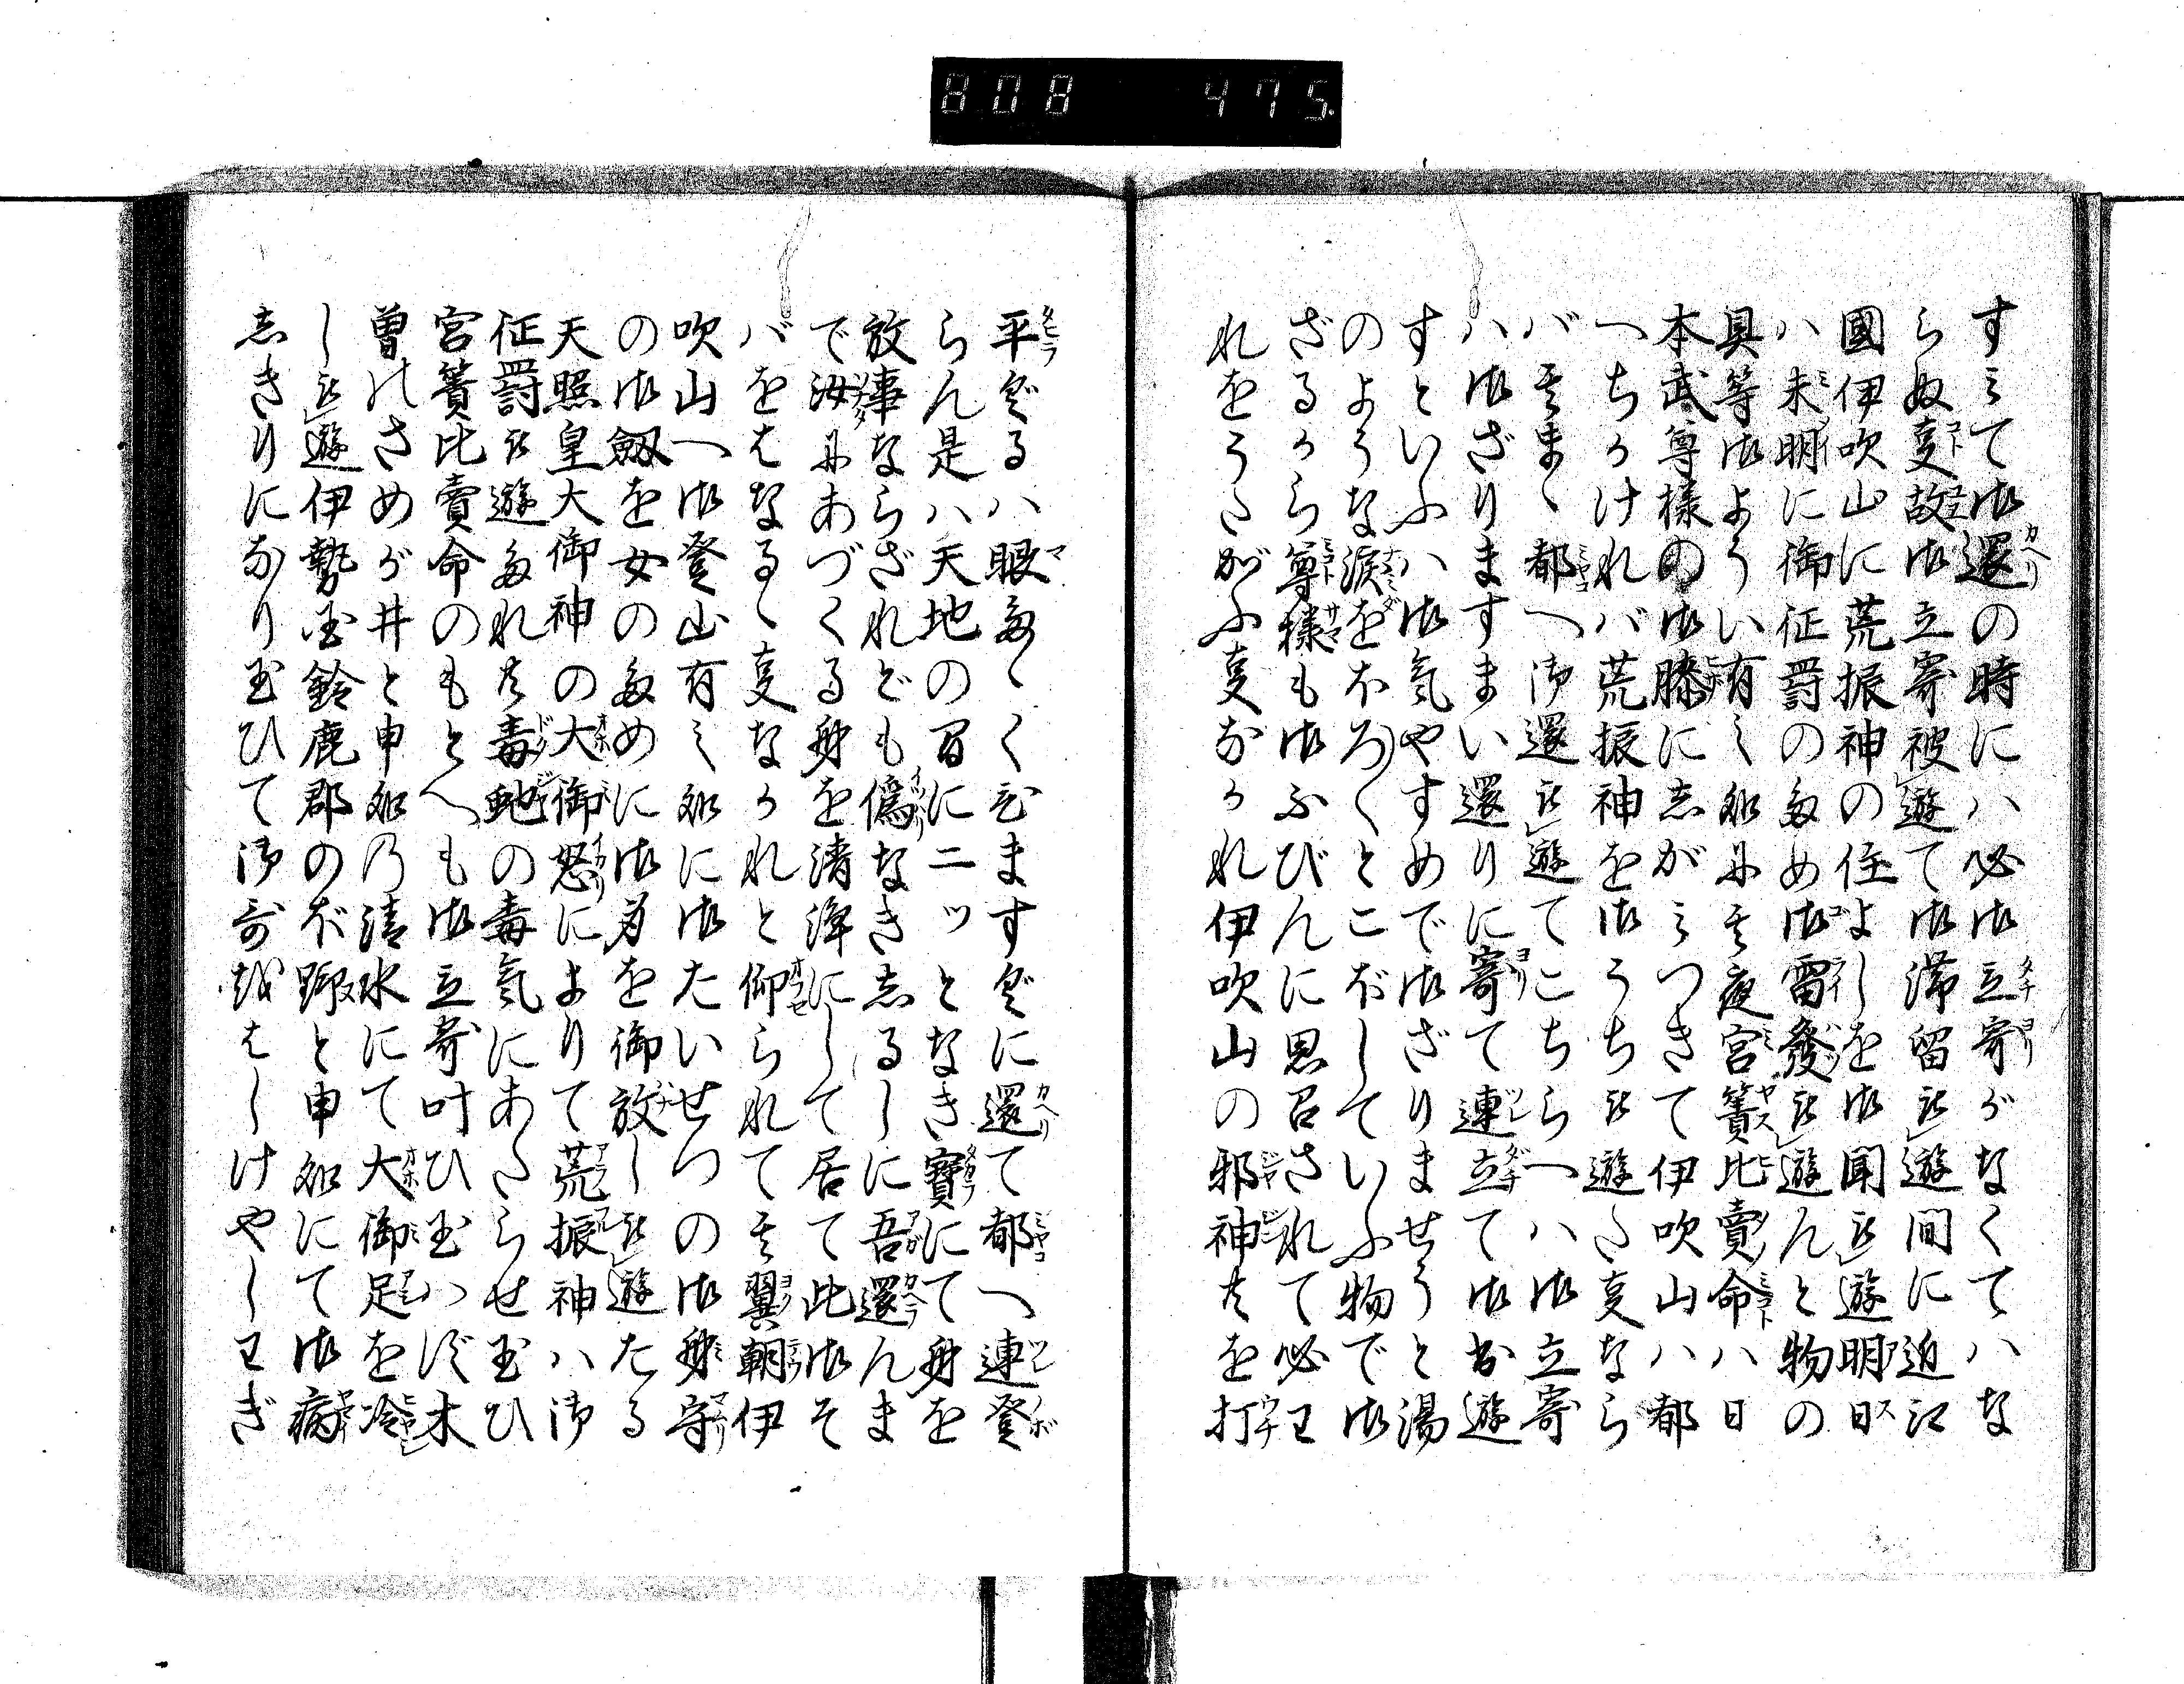 808 475.
すミて御還の時にハ必御立寄がなくてハな
らぬ㕝故御立寄被遊て御滞留被遊間に近江
國伊吹山に荒振神の住よしを御聞被遊明日
ハ未明に御征罸の為め御雷發被遊んと物の
具等御ようい有之処に其夜宮簀比賣命ハ日
本武尊様の御膝に志がミつきて伊吹山ハ都
へちかけれバ荒振神を御うち被遊た㕝なら
バ其まゝ都へ御還被遊てこちらへハ御立寄
ハ御ざりますまい還りに寄て連立て御出遊
すといふハ御気やすめで御ざりませうと湯
のような涙をおろ〳〵とこぼしていふ物で御
ざるから尊様も御ふびんに思召されて必わ
れをうたがふ㕝なかれ伊吹山の邪神共を打
平ぞるハ眼たゝくひますぞに還て都へ連登
らん是ハ天地の間に二ッとなき寶にて身を
放事ならざれども偽なき志るしに吾還んま
で汝にあづくる身を清浄にして居て此御そ
バをはなるゝ㕝なかれと仰られて其翼朝伊
吹山へ御登山有之処に御たいせつの御身守
の御劔を女のために御身を御放し被遊たる
天照皇大御神の大御怒によりて荒振神ハ御
征罸被遊たれ共毒虵の毒氣にあたらせ玉ひ
宮簀比賣命のもとへも御立寄叶ひ玉ハず木
曽のさめが井と申処乃清水にて大御足を冷
し被遊伊勢国鈴鹿郡のぼ野と申処にて御病
志きりになり玉ひて御哥越はしけやしわぎ